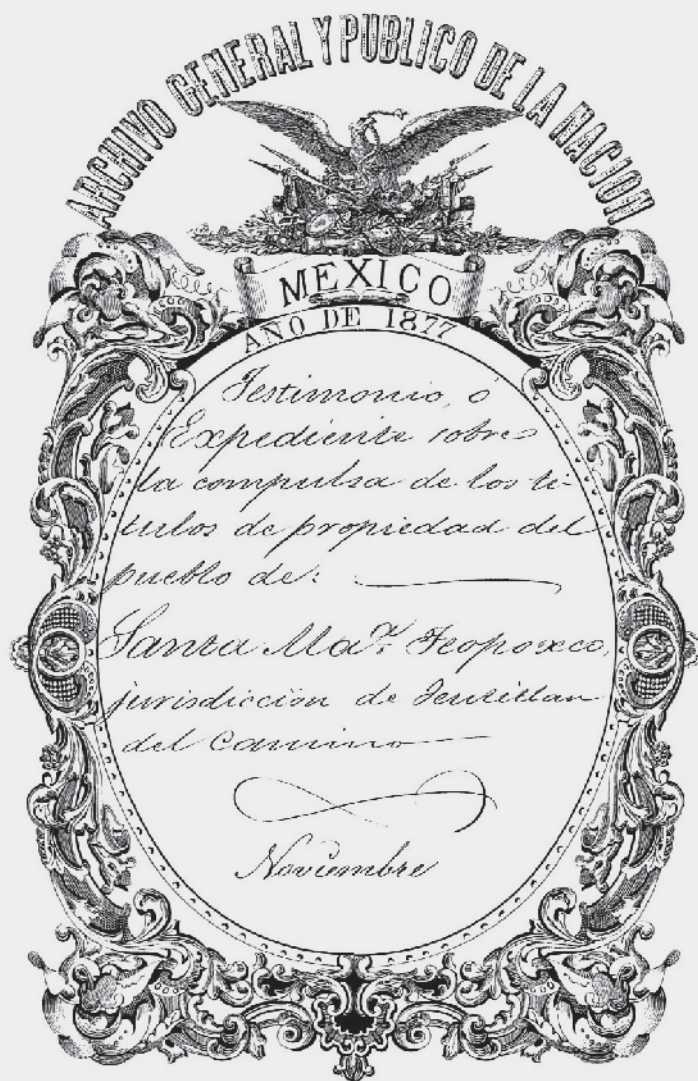 ARCHIVO GENERAL Y PUBLICO DE LA NACION
MEXICO
AÑO DE 1877
Testimonio, ó
Expediente sobre
la compulsa de los tí-
tulos de propiedad del
pueblo de:
Santa Ma. Teopoxco,
jurisdicción de Teutitlan
del Camino
Noviembre